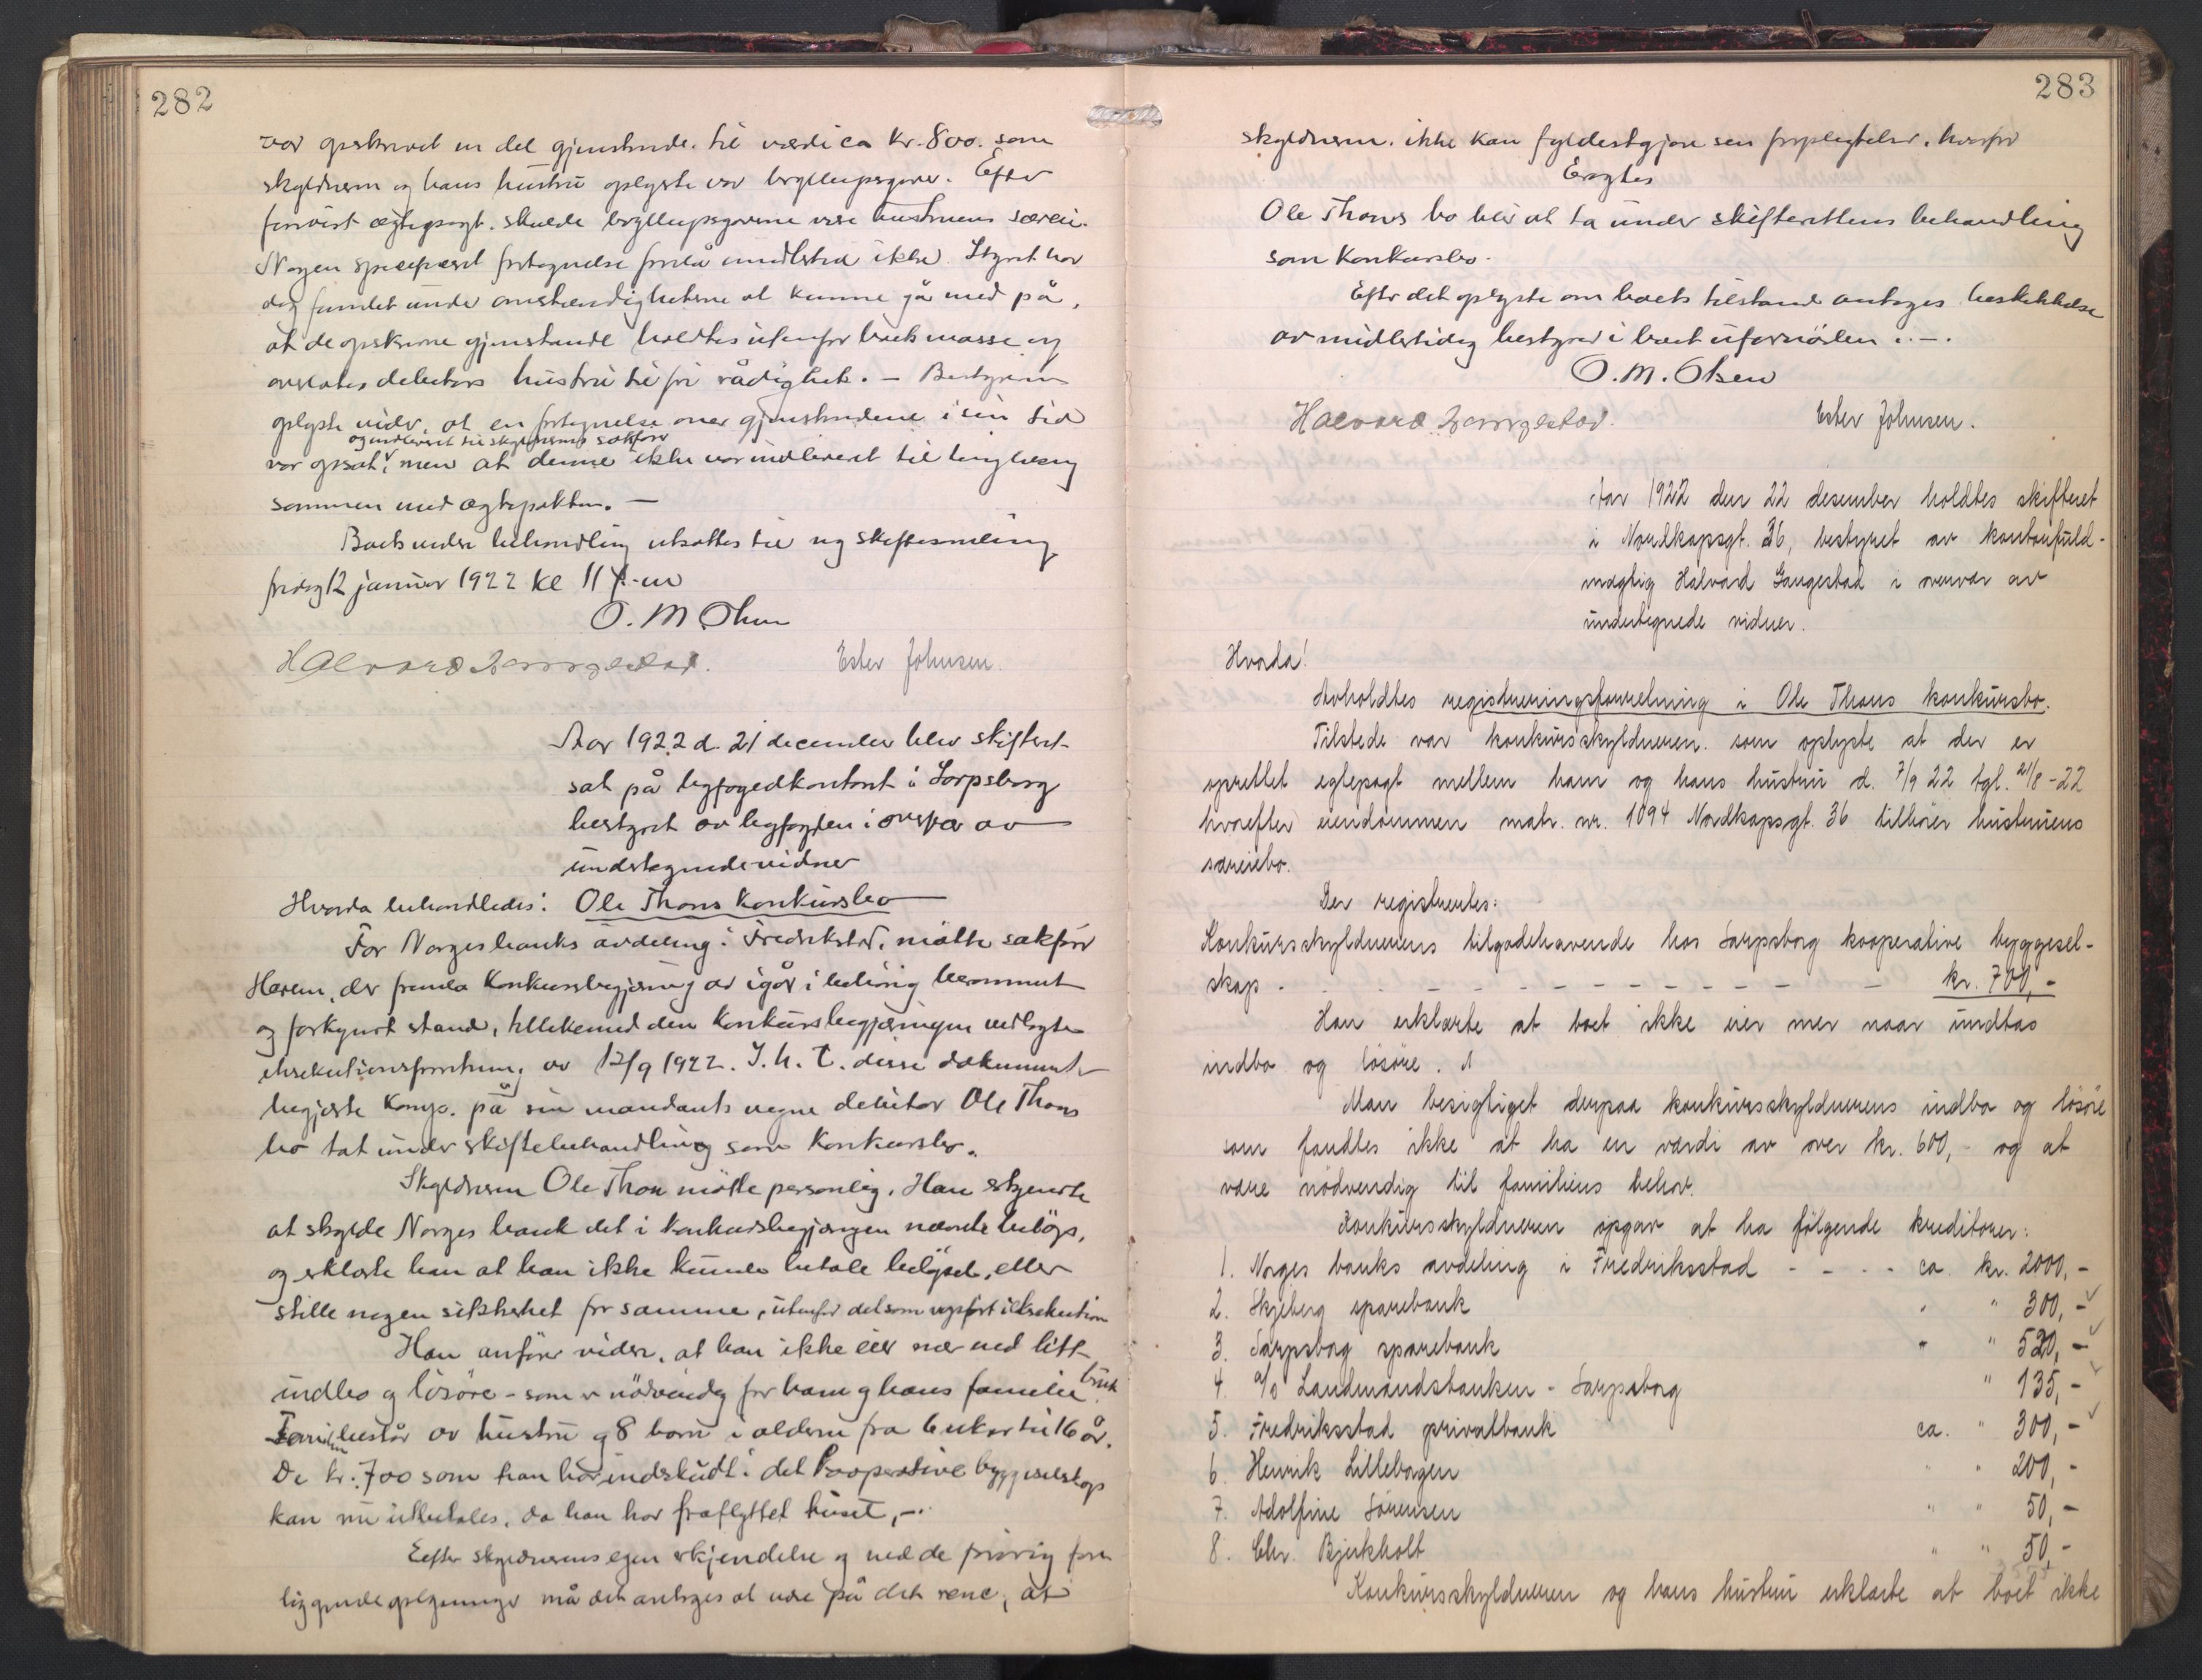 282
var opskrevet en del gjenstande til værdi ca kr. 800. som
skyldneren og hans hustru oplyste var bryllupsgaver. Efter
forevist ægtepagt skulde bryllupsgaverne være hustruens særeie.
Nogen specificeret fortegnelse forelå imidlertid ikke. Styret har
dog fundet under omstændigheterne at kunne gå med på,
at de opskrevne gjenstande holdtes utenfor boets masse og
overlates debitors hustru til fri rådighet. - Bestyreren
oplyste videre, at en fortegnelse over gjenstandene i sin tid
og indleveret til skyldnerens sakfører
var opsat, men at denne ikke var indleveret til tinglæsning
sammen med ægtepakten. -
Boets videre behandling utsattes til ny skiftesamling
fredag 12 januar 1922 kl 11 f.m
O. M Olsen
Halvard Langestad. Ester Johnsen.
Aar 1922 d. 21 december blev skifteret
sat på byfogedkontoret i Sarpsborg
bestyret av byfogden i overvær av
undertegnede vidner
Hvorda behandledes: Ole Thons konkursbo
For Norges banks avdeling i Fredrikstad, mötte sakförer
Harem, der fremla konkursbegjæring av igår i behörig berammet
og forkynt stand, tillikemed den konkursbegjæringen vedlagte
eksekutionsforretning av 12/9 1922. I. h. t. disse dokumenter
begjærte komp. på sin mandants vegne debitor Ole Thons
bo tat under skiftebehandling som konkursbo.
Skyldneren Ole Thon mötte personlig. Han erkjendte
at skylde Norges bank det i konkursbegjæringen nævnte belöp,
og erklærte han at han ikke kunde betale belöpet, eller
stille nogen sikkerhet for samme, utenfor det som er opfört i eksekution
Han anförer videre, at han ikke eier mer end litt
indbo og lösöre - som er nödvendig for ham og hans families bruk
Familien består av hustru og 8 barn i alderen fra 6 uker til 16 år.
De kr. 700 som han har indskudt i det kooperative byggeselskap
kan nu utbetales, da han har fraflyttet huset, -.
Efter skyldnerens egen erkjendelse og ved de forövrig fore-
liggende oplysninger må det antages at være på det rene, at
283
skyldneren ikke kan fyldestgjøre sin forpligtelser, hvorfor
Eragtes
Ole Thons bo blir at ta under skifterettens behandling
som konkursbo.
Efter det oplyste om boets tilstand antages beskikkelse
av midlertidig bestyrer i boet ufornöden. . - .
O. M. Olsen
Halvard Langestad. Ester Johnsen.
Aar 1922 den 22 desember holdtes skifteret
i Nordkapsgt. 36, bestyret av kontorfuld-
mægtig Halvard Langestad i overvær av
undertegnede vidner.
Hvorda!
Avholdtes registreringsforretning i Ole Thons konkursbo.
Tilstede var konkursskyldneren som oplyste at der er
oprettet egtepagt mellem ham og hans hustru d. 7/9 22 tgl. 21/8 - 22
hvorefter eiendommen matr. nr. 1094 Nordkapsgt. 36 tilhörer hustruens
særeiebo.
Der registrertes:
Konkursskyldnerens tilgodehavende hos Sarpsborg kooperative byggesel-
skap . - - - - - - - - - - kr. 700,-
Han erklærte at boet ikke eier mer naar undtas
indbo og lösöre.
Man besigtiget derpaa konkursskyldnerens indbo og lösöre
som fandtes ikke at ha en værdi av over kr. 600,- og at
være nödvendig til familiens behov.
Konkursskyldneren opgav at ha fölgende kreditorer:
1. Norges banks avdeling i Fredriksstad - - - - ca. kr. 2000,-
2. Skjeberg sparebank " " 300,-
3. Sarpsborg sparebank " " 520,-
4. A/S Landmandsbanken - Sarpsborg " 135,-
5. Fredriksstad privatbank ca. " 300,-
6. Henrik Lilleborgen " " 200,-
7. Adolfine Sörensen " " 50,-
8. Chr. Bjerkholt " " 50,-
Konkursskyldneren og hans hustru erklærte at boet ikke